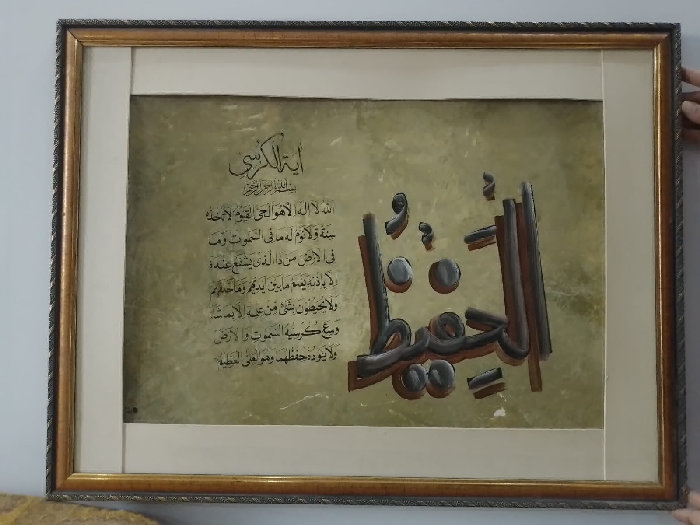 آية الكرسي
بسم الله الرحمن الرحيم
الله لا إله الا هو الحي القيوم لا تأخذه
سنة ولا نوم له ما في السموت وما
في الارض من ذا الذي يشفع عنده
إلا بإذنه يعلم ما بين أيديهم وما خلفهم
ولا يحيطون بشئ من علمه إلا بما شاء
وسع كرسيه السموت والارض
ولا يئوده حفظهما وهو العلي العظيم
الحفيظ